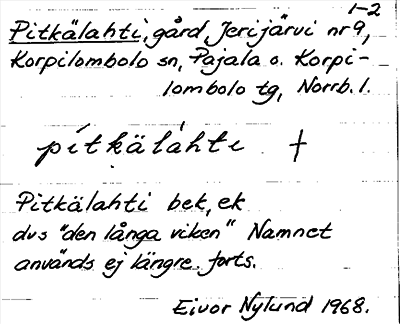 1-2
Pitkälahti, gård, Jerijärvi nr 9,
Korpilombolo sn, Pajala o. Korpi-
lombolo tg, Norrb. l.
pìtkälàhtı †
Pitkälahti bek, ek
dvs "den långa viken" Namnet
används ej längre. forts.
Eivor Nylund 1968.